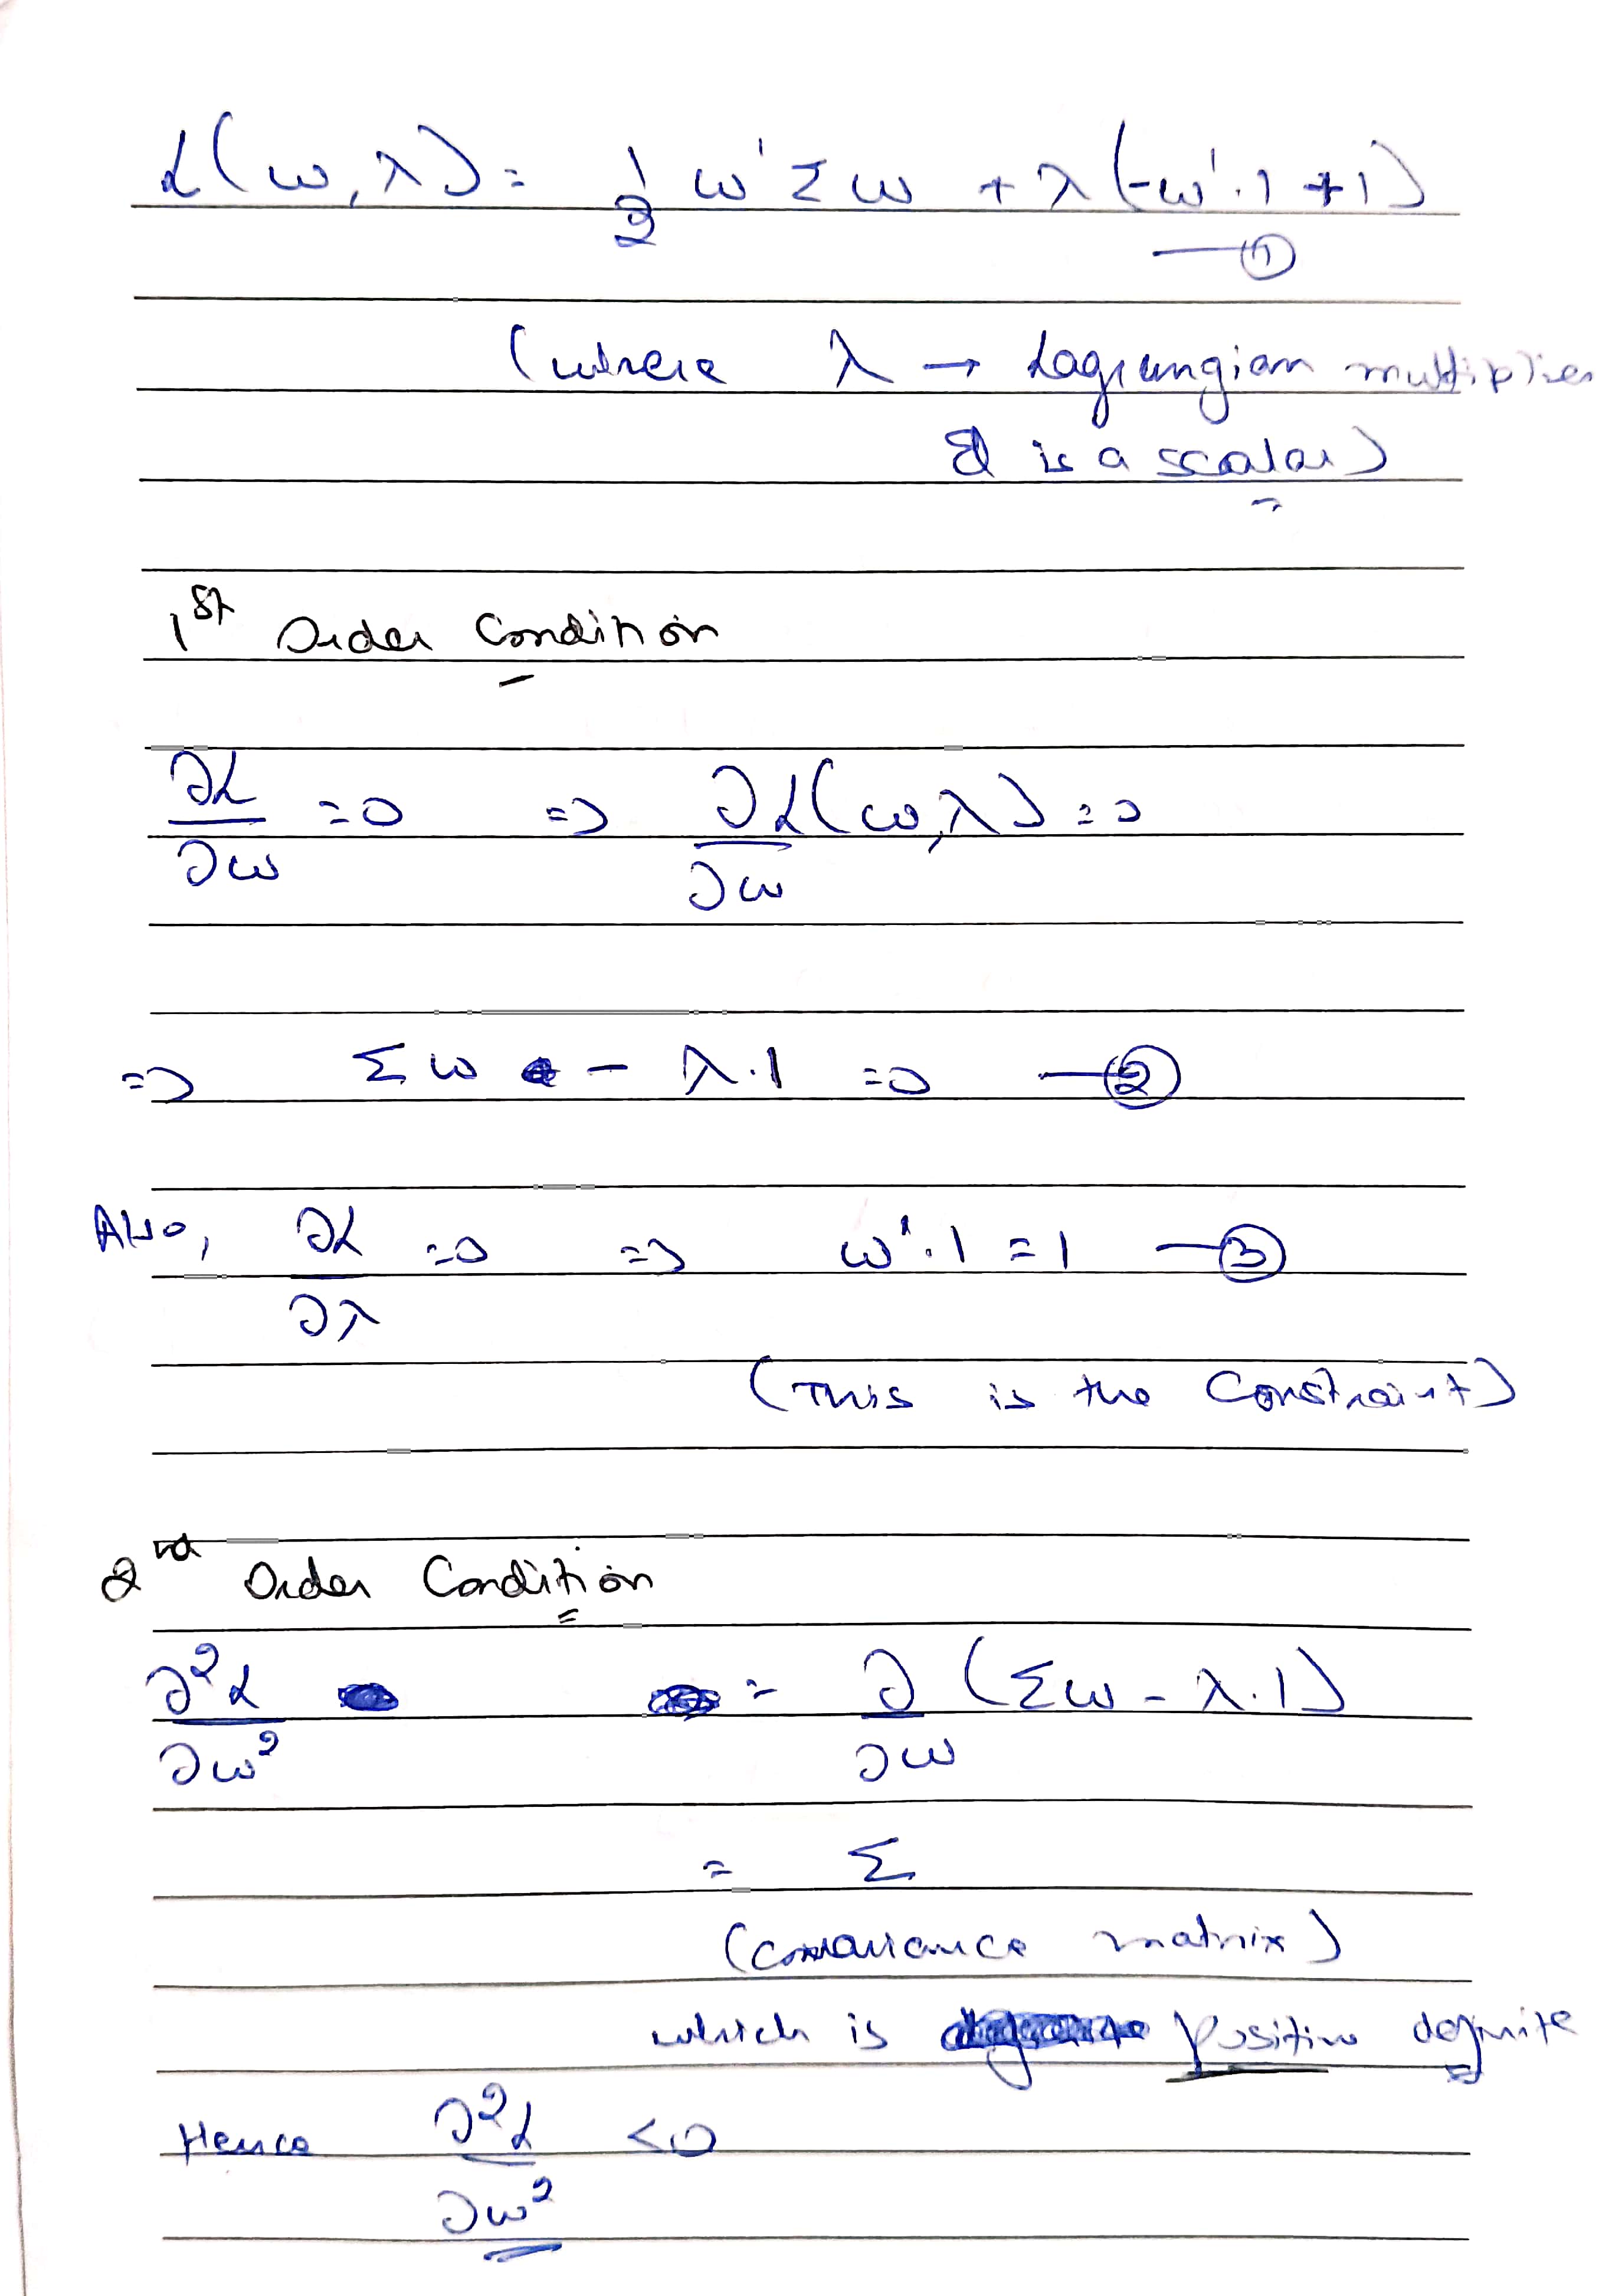 ℒ(ω,λ) = 1/2 ω' Σ ω + λ(-ω'.1 + 1)
—①
(where λ → Lagrangian multiplier
& is a scalar)
1st Order Condition
∂ℒ/∂ω = 0 => ∂ℒ(ω,λ)/∂ω = 0
=> Σω - λ.1 = 0 —②
Also, ∂ℒ/∂λ = 0 => ω'.1 = 1 —③
(This is the Constraint)
2nd Order Condition
∂²ℒ/∂ω² = ∂/∂ω (Σω - λ.1)
= Σ
(covariance matrix)
which is positive definite
Hence ∂²ℒ/∂ω² < 0